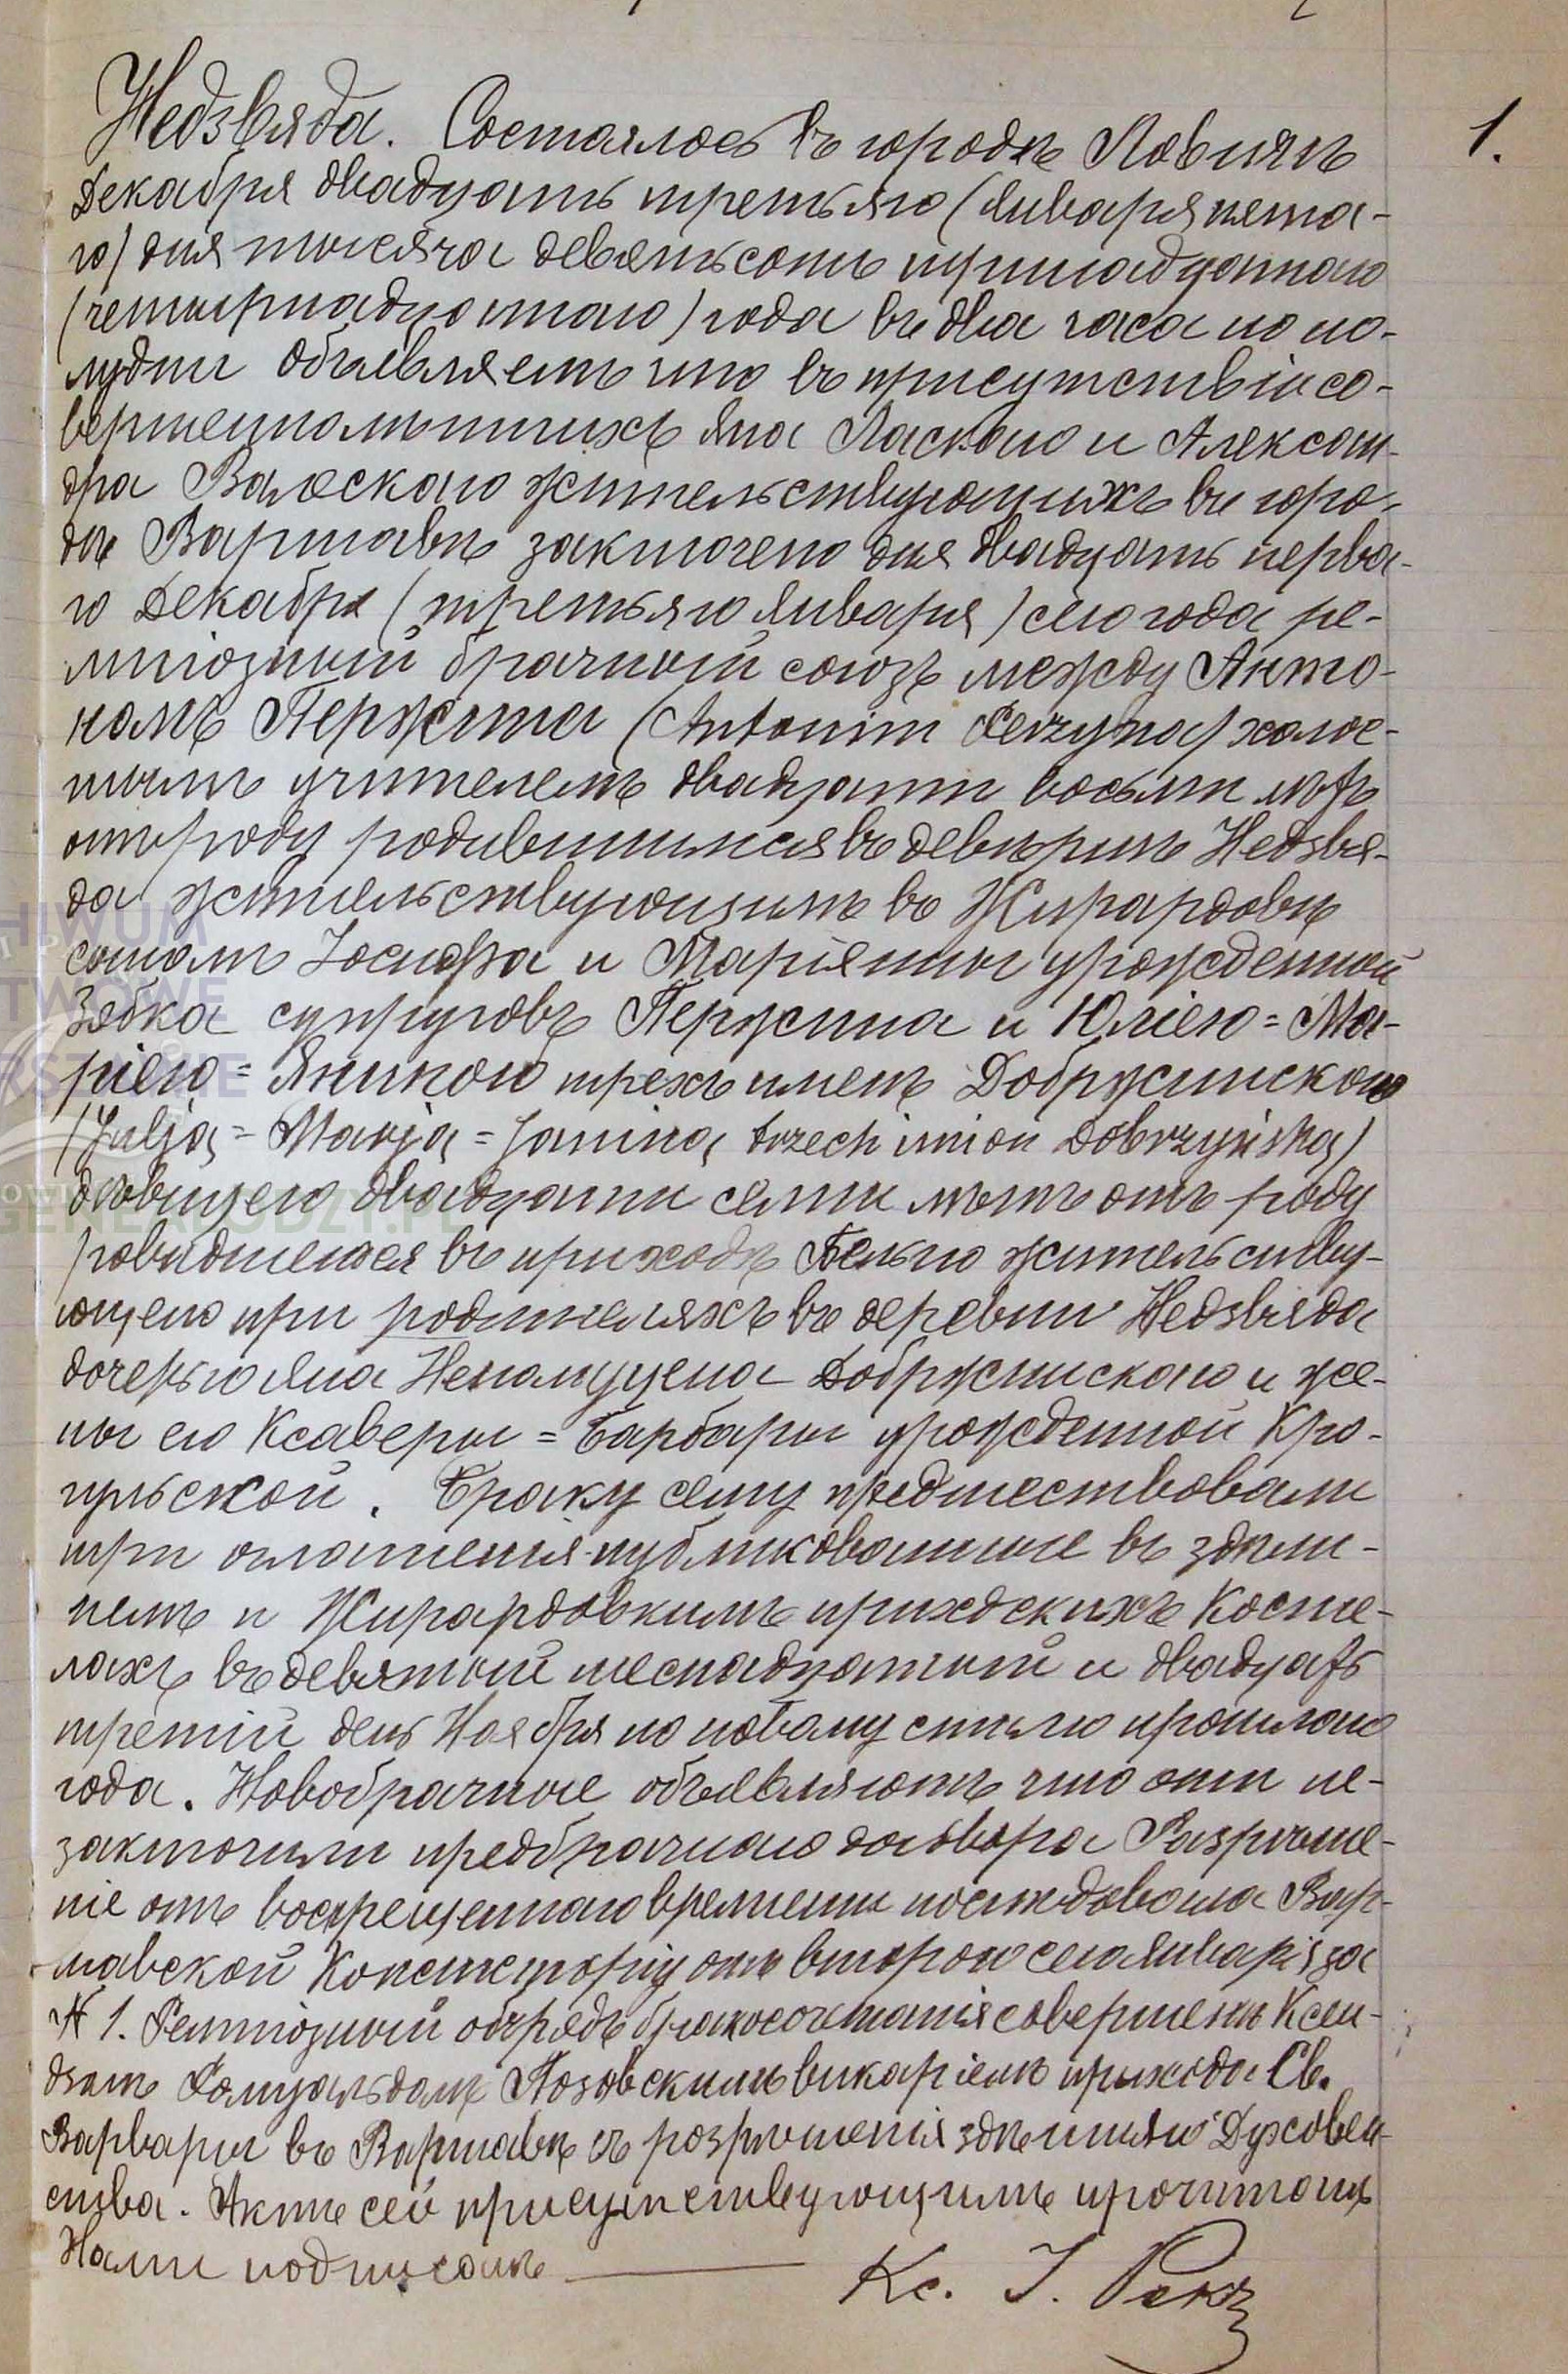 1.
Недзвяда. Состоялось въ городѣ Ловичѣ
Декабря двадцать третьяго (Января пята-
го) дня тысяча девятьсотъ тринадцатаго
(четырнадцатаго) года въ два часа по по-
лудни Объявляемъ что въ присутствіи со-
вершеннолѣтнихъ Яна Ласкаго и Алексан-
дра жительствующихъ въ горо-
дѣ Варшавѣ заключено дня двадцать перва-
го Декабря (третьяго Января) сего года ре-
лигіозный брачный союзъ между Анто-
номъ Пержина (Antonim Perzyna) холос-
тымъ учителемъ двадцати восьми лѣтъ
отъ роду родившимся въ деверни Недзвя-
да жительствующимъ въ Жирардовѣ
сыномъ Іосифа и Маріянны урожденной
Зябка супруговъ Пержина и Юліею=Ма-
ріею=Яниною трехъ именъ Добржинскою
(Julją=Marją=Janiną trzech imion Dobrzyńską)
дѣвицею двадцати семи лѣтъ отъ роду
ровидшейся въ приходѣ Бельно жительству-
ющею при родителяхъ въ деревни Недзвяда
дочерью Яна Непомуцена Добржинскаго и же-
ны его Ксаверы=Барбары урожденной Кро-
гульской. Браку сему предшествовали
три оглашенія публикованные въ здѣш-
немъ и Жирардовкимъ приходскихъ Косте-
лахъ въ девятый шеснадцатый и двадцать
третій день Ноября по новому стилю прошлаго
года. Новобрачные объявляютъ что они не-
заключили предбрачнаго договора Разрѣше-
ніе отъ воспрещеннаго времени послѣдовала Вар-
шавской Консисторіи отъ второго сего Января за
№ 1. Религіозный обрядъ бракосочетанія совершенъ Ксен-
дзомъ Ромуальдомъ викаріемъ прихода Св.
Варвары въ Варшавѣ съ розрѣшенія здѣшняго Духовен-
ства. Актъ сей присутствующимъ прочитанъ
Нами подписанъ
Кс. І.